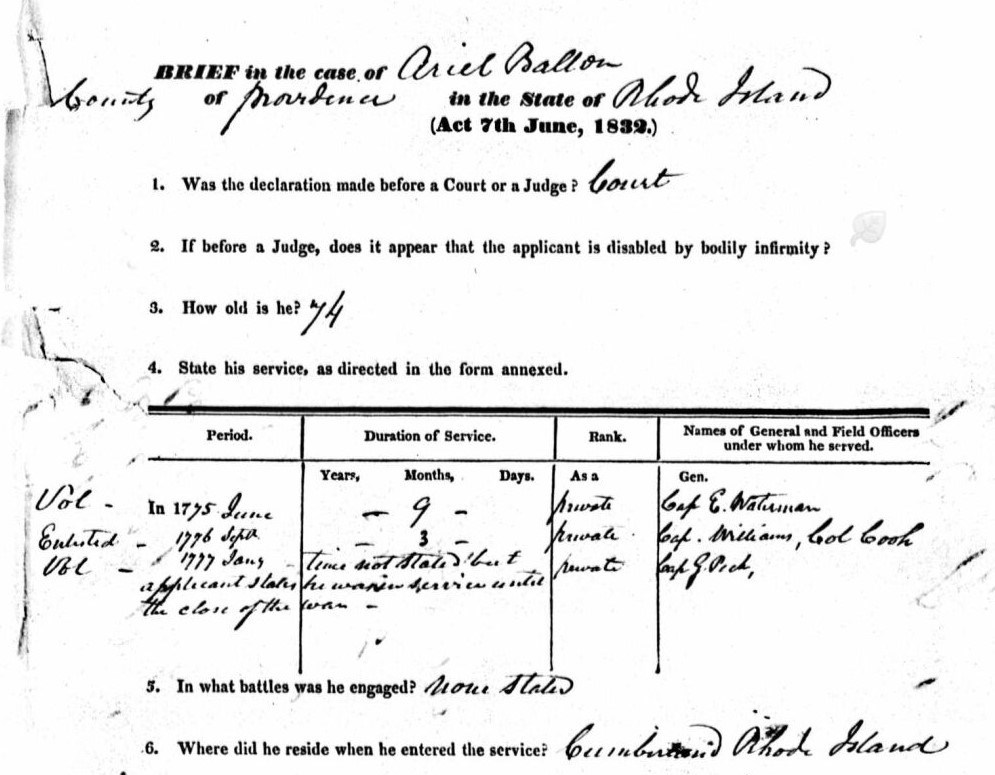 BRIEF in the case of Ariel Ballou
County of Providence in the State of Rhode Island
(Act 7th June, 1832.)
1. Was the declaration made before a Court or a Judge? Court
2. If before a Judge, does it appear that the applicant is disabled by bodily infirmity?
3. How old is he? 74
4. State his service, as directed in the form annexed.
Period. Duration of Service. Rank. Names of General and Field Officers
under whom he served.
Years, Months, Days. As a Gen.
Vol - In 1775 June - 9 - private Cap E. Waterman
Enlisted - 1776 Sept - 3 - private Cap. Williams, Col Cook
Vol - 1777 Jany - time not stated but private Cap G. Peck,
applicant states he was in service until
the close of the war -
5. In what battles was he engaged? None stated
6. Where did he reside when he entered the service? Cumberland Rhode Island